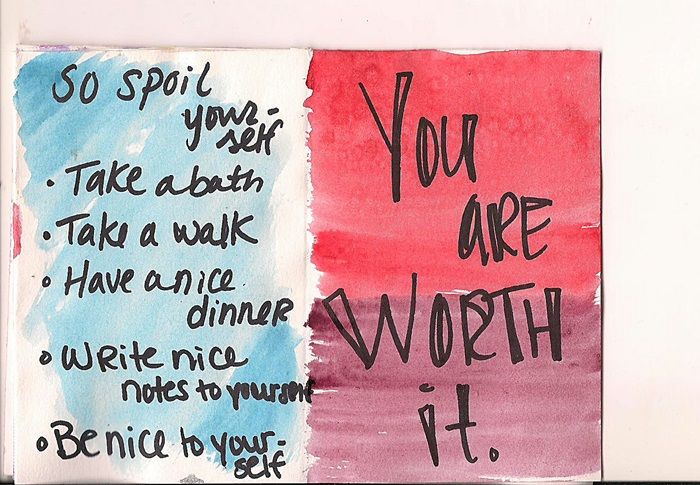 SO SPOIL
your-
self
• Take a bath
• Take a walk
• Have a nice
dinner
• WRite nice
notes to yourself
• Be nice to your-
self
You
aRE
WORTH
it.